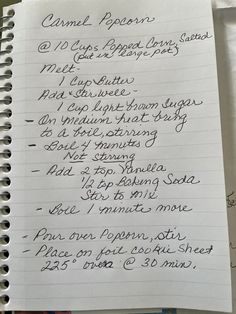 Carmel Popcorn
@ 10 Cups Popped Corn, Salted
(put in large pot)
Melt -
1 Cup Butter
Add & Stir Well -
1 Cup light brown Sugar
- On medium heat bring
to a boil, stirring
- Boil 4 minutes
Not stirring
- Add 2 tsp. Vanilla
1/2 tsp Baking Soda
Stir to mix
- Boil 1 minute more
- Pour over Popcorn, stir
- Place on foil cookie sheet
225° oven @ 30 min.